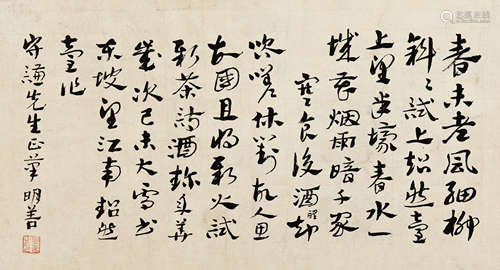 春未老風細柳
斜〻試上超然臺
上望半壕春水一
城花烟雨暗千家
寒食後酒醒却
咨嗟休對故人思
故國且將新火試
新茶詩酒趁年華
歲次己未大雪書
東坡望江南超然
臺作
守謙先生正 明善